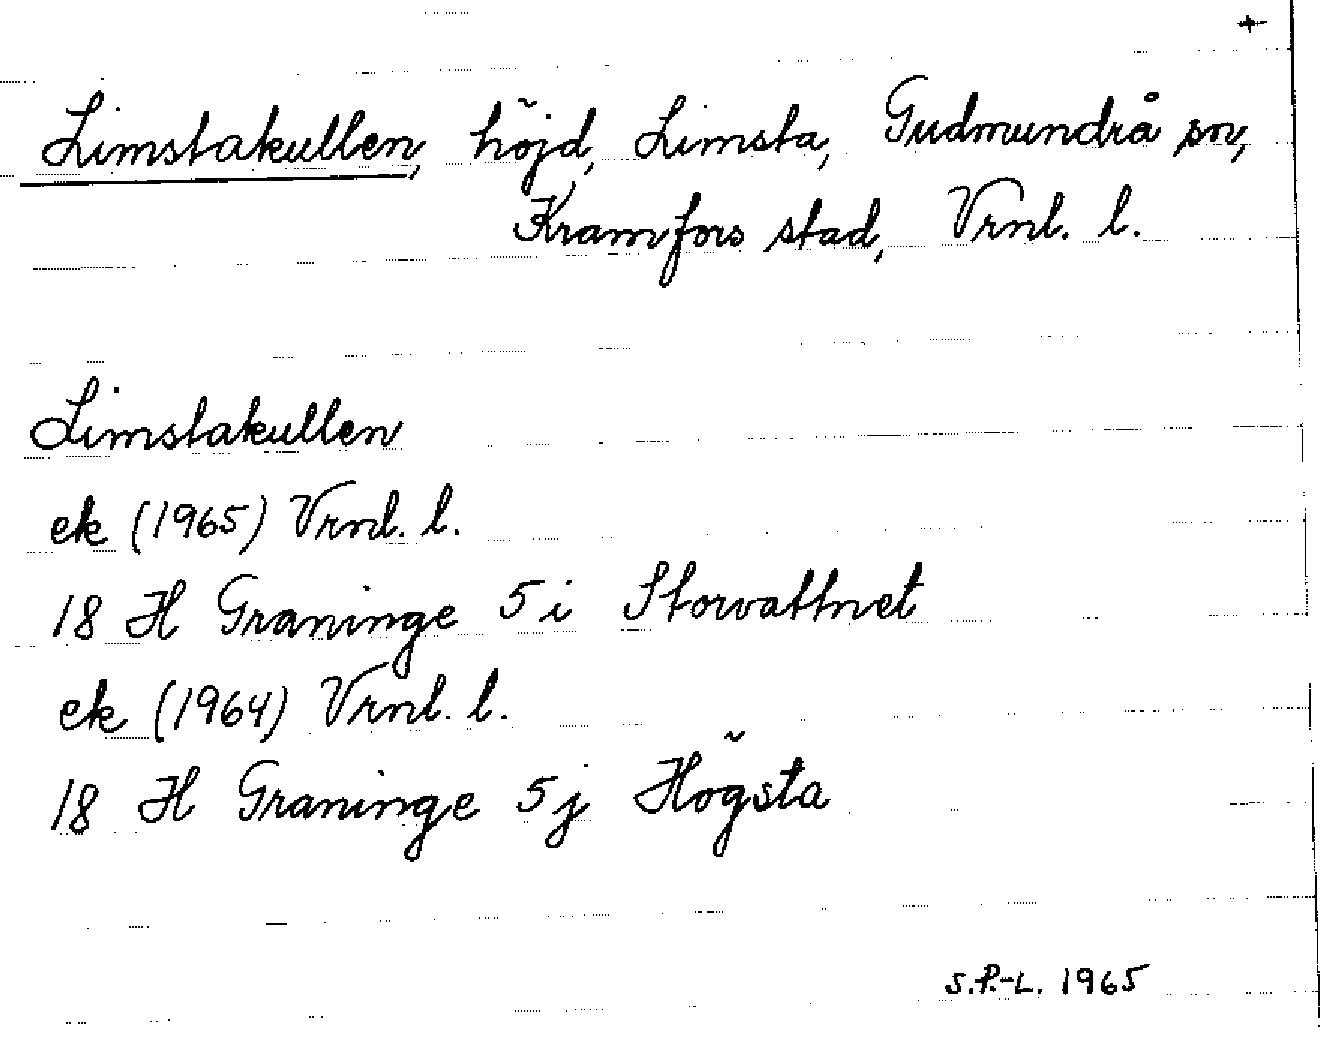 +
Limstakullen, höjd, Limsta, Gudmundrå sn,
Kramfors stad, Vrnl. l.
Limstakullen
ek (1965) Vrnl. l.
18 H Graninge 5 i Storvattnet
ek (1964) Vrnl. l.
18 H Graninge 5j Högsta
S.P.-L. 1965